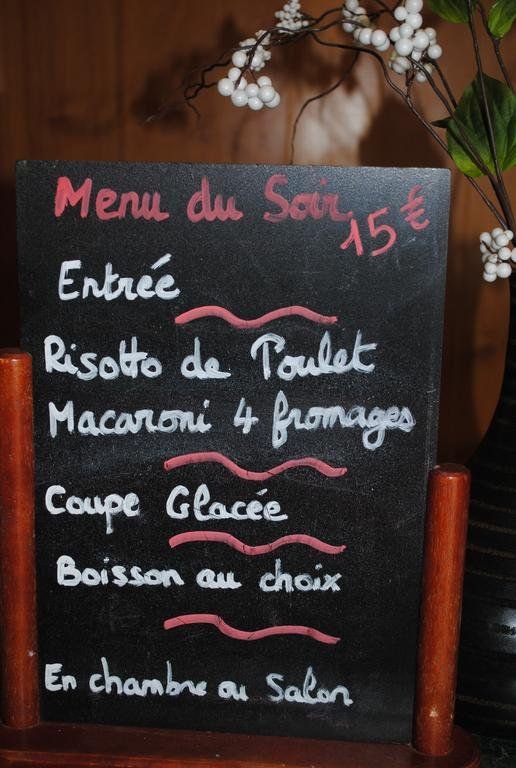 Menu du Soir
15 €
Entrée
Risotto de Poulet
Macaroni 4 fromages
Coupe Glacée
Boisson au choix
En chambre ou Salon